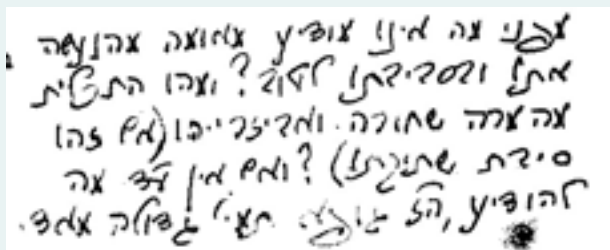 מפני מה אינו מודיע מאומה מהנעשה
אתו ובסביבתו לטוב? ומהו התכלית
מהמרה שחורה. (אם זהו
סיבת שתיקתו)? ואם אין מה
להודיע, ה"ז גופא תמי' גדולה מאד.